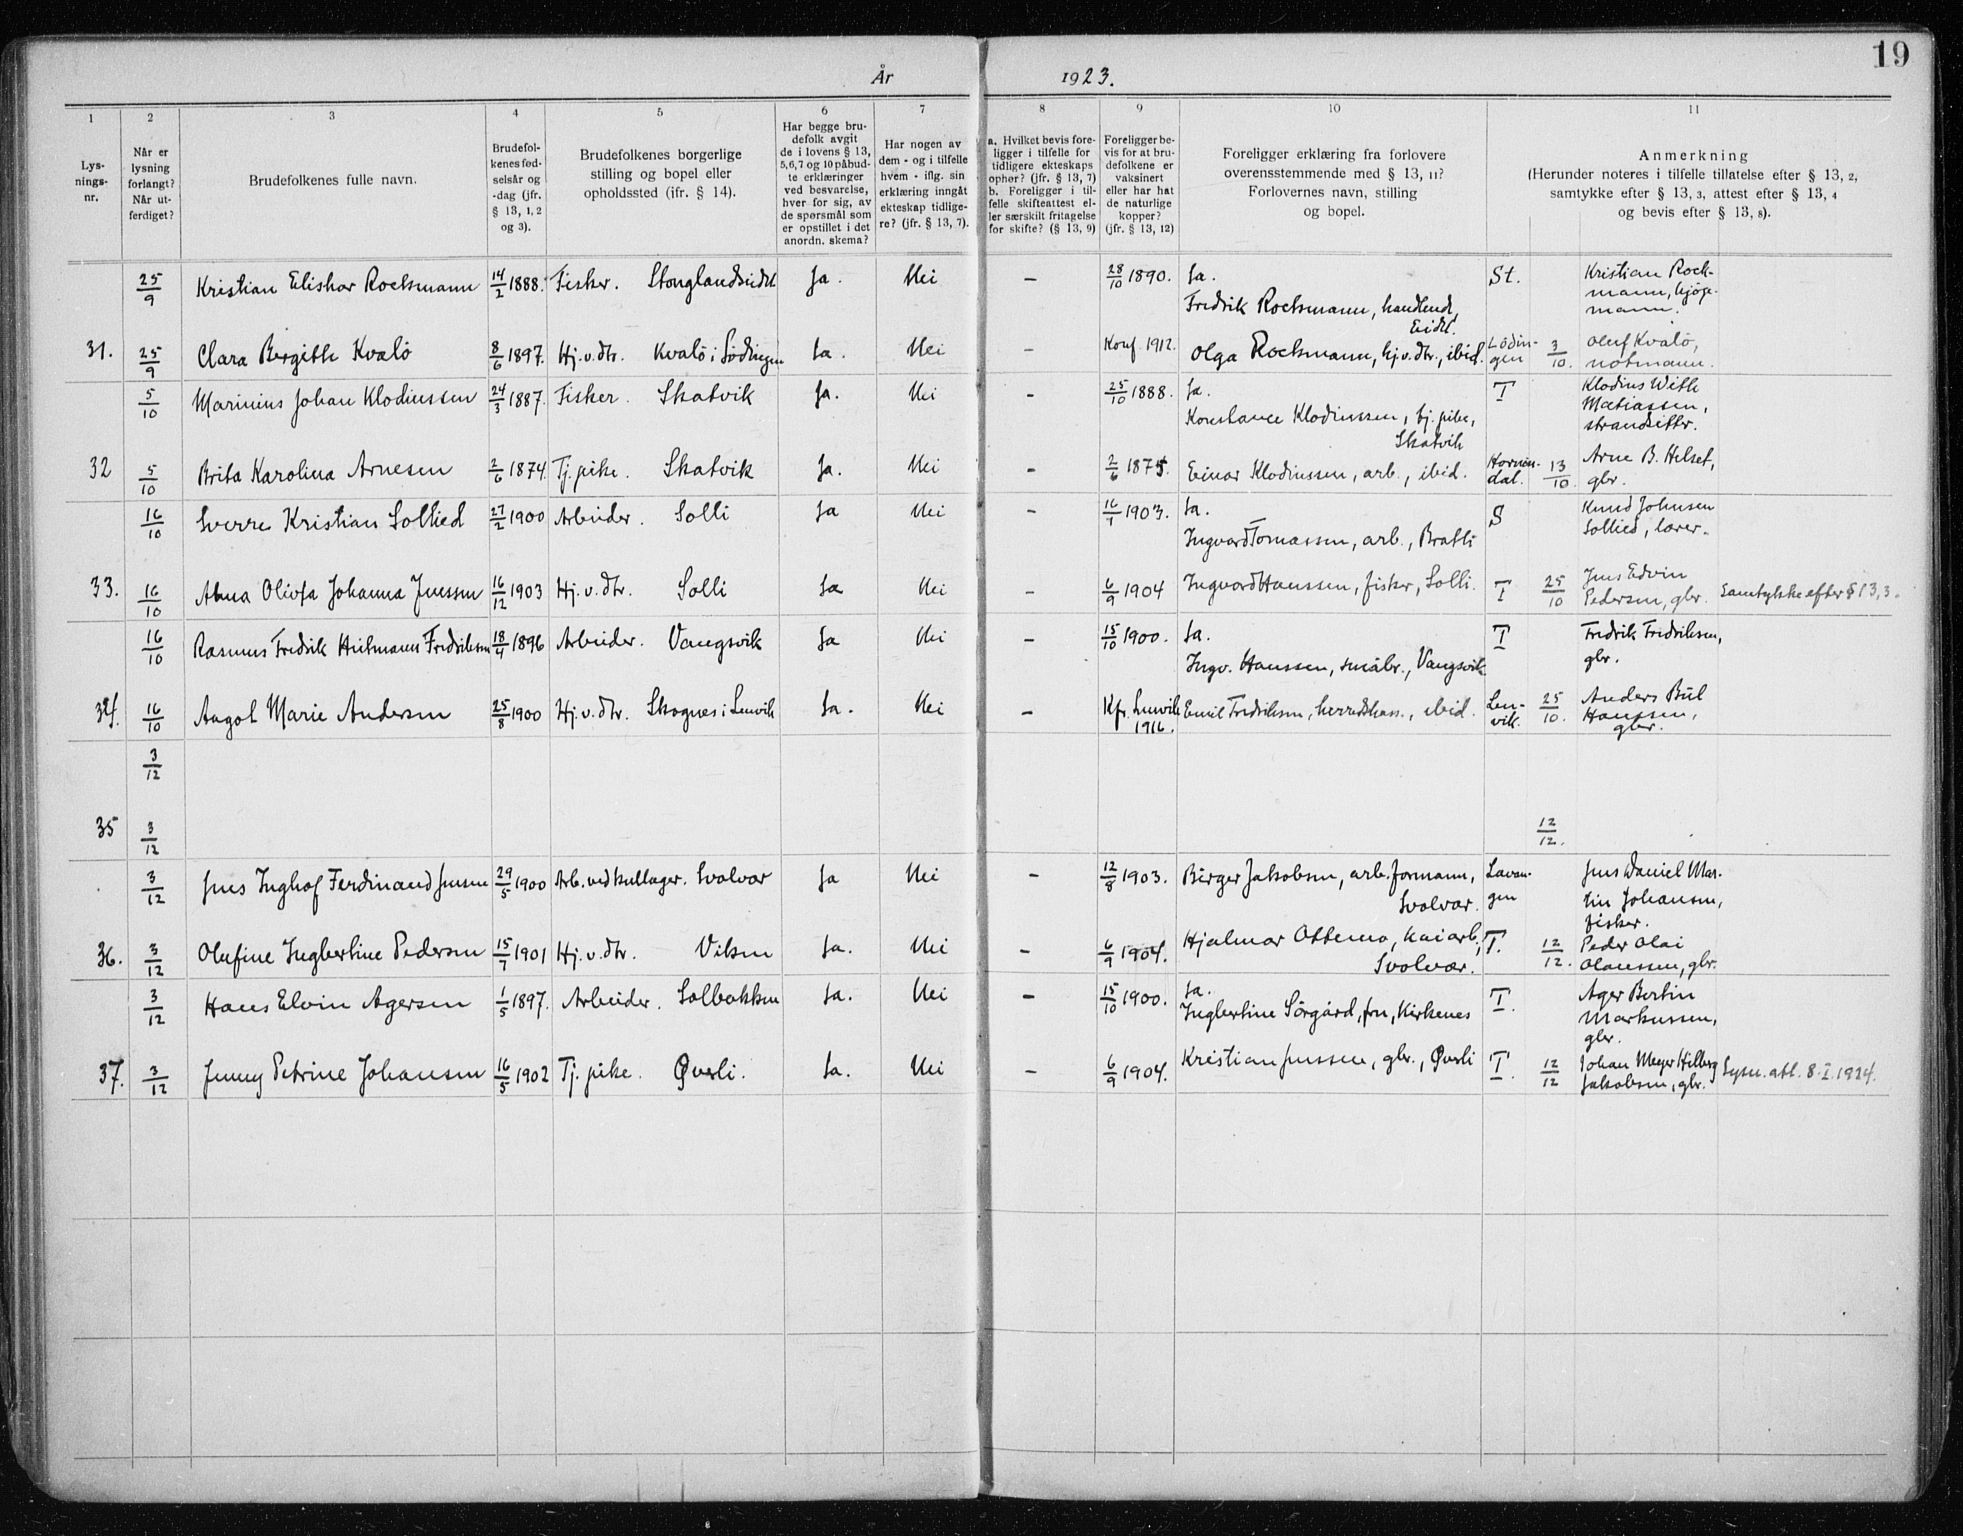 19
År 1923.
1 2 3 4 5 6 7 8 9 10 11
Lys-
nings-
nr.
Når er
lysning
forlangt?
Når ut-
ferdiget?
Brudefolkenes fulle navn.
Brudefol-
kenes fød-
selsår og
-dag (jfr.
§ 13, 1, 2
og 3).
Brudefolkenes borgerlige
stilling og bopel eller
opholdssted (ifr. § 14).
Har begge bru-
defolk avgit
de i lovens § 13,
5, 6, 7 og 10 påbud-
te erklæringer
ved besvarelse,
hver for sig, av
de spørsmål som
er opstillet i det
anordn. skema?
Har nogen av
dem - og i tilfelle
hvem - iflg. sin
erklæring inngått
ekteskap tidlige-
re? (jfr. § 13, 7).
a. Hvilket bevis fore-
ligger i tilfelle for
tidligere ekteskaps
ophør? (jfr. § 13, 7)
b. Foreligger i til-
felle skifteattest el-
ler særskilt fritagelse
for skifte? (§ 13, 9)
Foreligger be-
vis for at bru-
defolkene er
vaksinert
eller har hat
de naturlige
kopper?
(jfr. § 13, 12)
Foreligger erklæring fra forlovere
overensstemmende med § 13, 11?
Forlovernes navn, stilling
og bopel.
Anmerkning
(Herunder noteres i tilfelle tillatelse efter § 13, 2,
samtykke efter § 13, 3, attest efter § 13, 4
og bevis efter § 13, 8).
25/9 Kristian Elishar Rocksmann 14/2 1888. Fisker. Stonglandseidet Ja. Nei – 28/10 1890. Ja. St. Kristian Rock-
mann, kjøp-
mann.
Fredrik Rocksmann, handlende,
Eidet.
31. 25/9 Clara Bergithe Kvalö 8/6 1897. Hj.v.dtr. Kvalö i Lödingen Ja. Nei – Konf 1912. Olga Rocksmann, hj.v.dtr., ibid. Lödin-
gen 3/10. Oluf Kvalö,
notmann.
5/10 Marinius Johan Klodiussen 24/3 1887. Fisker. Skatvik Ja. Nei – 25/10 1888. Ja. T Klodius With
Matiassen,
strandsitter.
Konstance Klodiussen, tj. pike,
Skatvik
32 5/10 Brita Karolina Arnesen 2/6 1874. Tj. pike. Skatvik Ja. Nei – 2/6 1875. Einar Klodiussen, arb., ibid. Hornin-
dal. 13/10. Arne B. Helset,
gbr.
16/10 Sverre Kristian Sollied 27/2 1900 Arbeider. Solli Ja Nei – 16/9 1903. Ja. S Knud Johnsen
Sollied, lærer.
Ingvard Tomassen, arb., Bratli
33. 16/10 Alma Olivfa Johanna Jenssen 16/12 1903 Hj.v.dtr. Solli Ja Nei – 6/9 1904 Ingvard Hanssen, fisker, Solli. T 25/10 Jens Edvin
Pedersen, gbr. Samtykke efter § 13, 3.
16/10 Rasmus Fredrik Hietmann Fredriksen 18/4 1896 Arbeider. Vangsvik Ja Nei – 15/10 1900. Ja. T Fredrik Fredriksen,
gbr.
Ingv. Hanssen, småbr., Vangsvik
34. 16/10 Aagot Marie Andersen 25/8 1900 Hj.v.dtr. Skognes i Lenvik Ja. Nei – Kfr. Lenvik
1916. Emil Fredriksen, herredskass., ibid. Len-
vik. 25/10. Anders Bul
Hanssen,
gbr.
3/12
35 3/12 12/12.
3/12 Jens Inghof Ferdinand Jensen 29/5 1900 Arb. ved kullager. Svolvær Ja Nei – 12/8 1903. Birger Jakobsen, arb.formann,
Svolvær. Lavan-
gen Jens Daniel Mar-
tin Johansen,
fisker.
36. 3/12 Olufine Ingbertine Pedersen 15/7 1901 Hj.v.dtr. Viken Ja. Nei – 6/9 1904. Hjalmar Ottemo, kaiarb.,
Svolvær. T. 12/12. Peder Olai
Olaussen, gbr.
3/12 Hans Elvin Agersen 1/5 1897. Arbeider. Solbakken Ja. Nei – 15/10 1900. Ja. T. Ager Bertin
Markussen,
gbr.
Ingbertine Sörgård, fru, Kirkenes
37. 3/12 Jenny Petrine Johansen 16/5 1902 Tj. pike. Øverli. Ja. Nei – 6/9 1904. Kristian Jenssen, gbr., Øverli T. 12/12 Johan Meyer Hilberg
Jakobsen, gbr. Lysn. att. 8.I.1924.